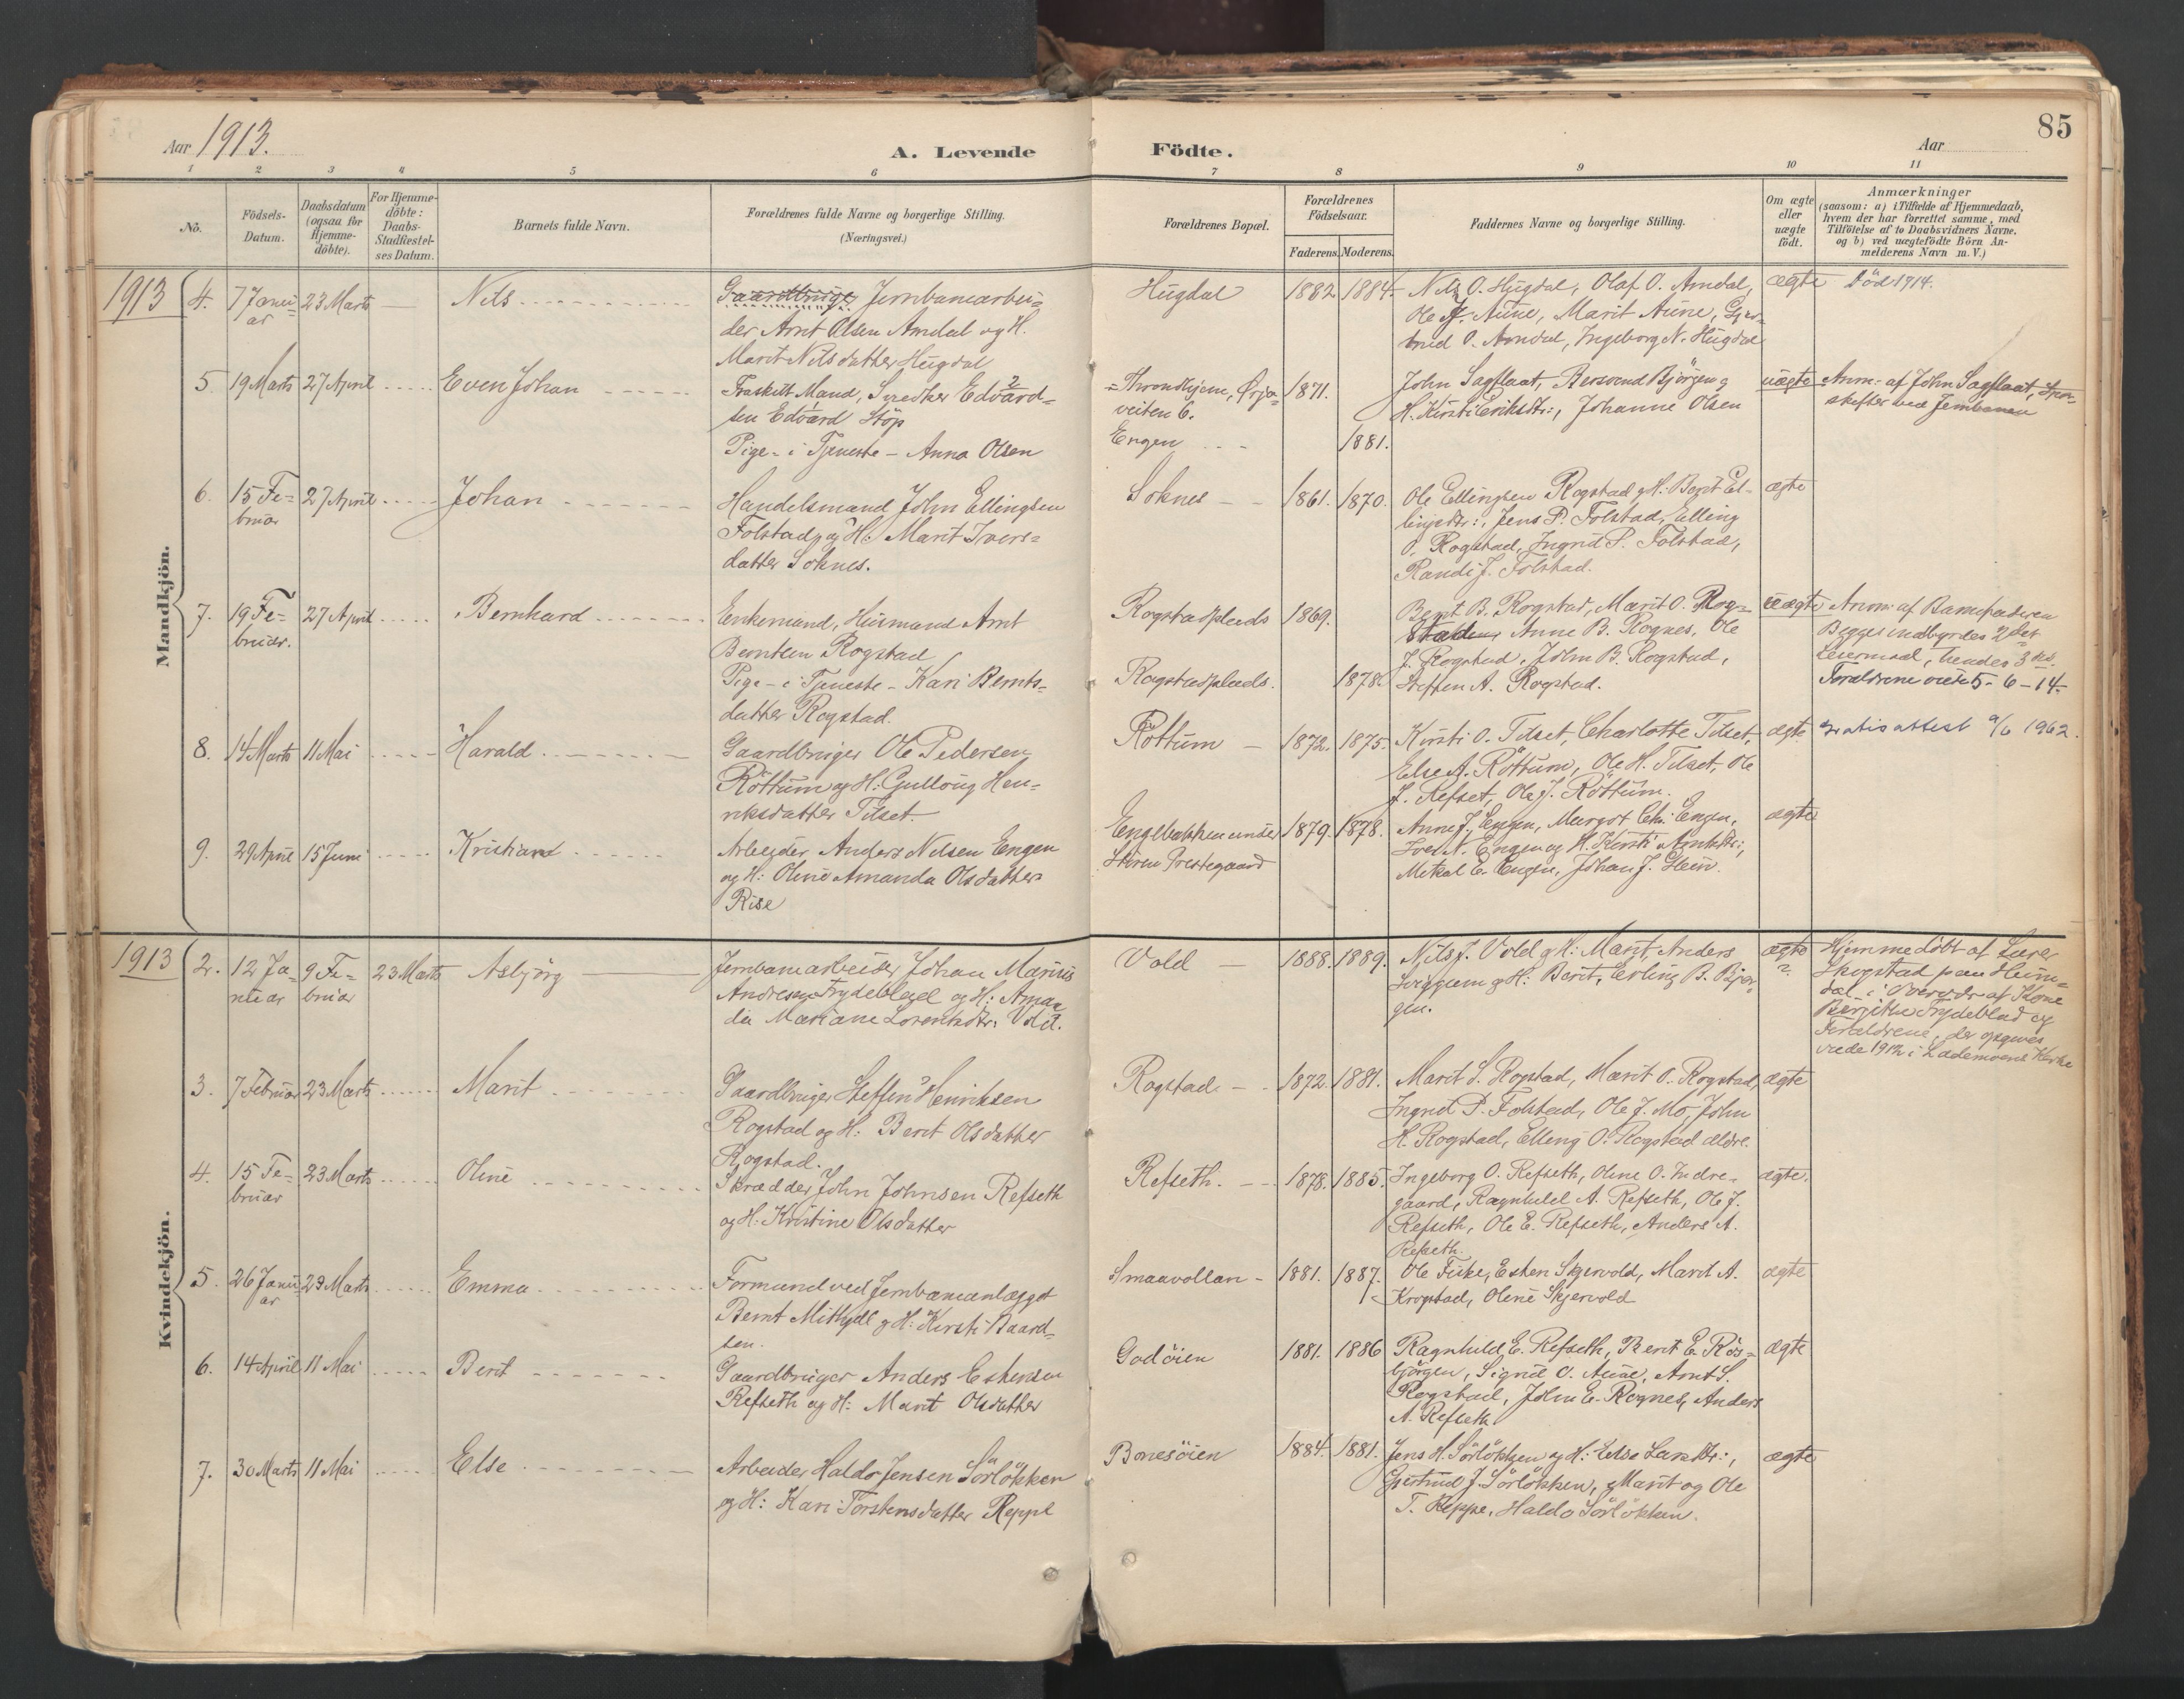 Aar 1913.
A. Levende
Födte.
Aar
85
1 2 3 4 5 6 7 8 9 10 11
No.
Födsels-
Datum.
Daabsdatum
(ogsaa for
Hjemme-
döbte).
For Hjemme-
döbte:
Daabs-
Stadfæstel-
ses Datum.
Barnets fulde Navn.
Forældrenes fulde Navne og borgerlige Stilling.
(Næringsvei.)
Forældrenes Bopæl.
Forældrenes
Födselsaar.
Faderens. Moderens.
Faddernes Navne og borgerlige Stilling.
Om ægte
eller
uægte
født.
Anmærkninger
(saasom: a) i Tilfælde af Hjemmedaab,
hvem der har forrettet samme, med
Tilföielse af to Daabsvidners Navne,
og b) ved uægtefödte Börn An-
melderens Navn m. V.)
Mandkjön.
1913
4.
7 Janu-
ar
23 Marts
Nils
Gaardbruger Jernbanearbei-
der Arnt Olsen Amdal og H.
Marit Nilsdatter Hugdal
Hugdal
1882 1884.
Nils O. Hugdal, Olaf O. Amdal,
Ole J. Aune, Marit Aune, Gjer-
trud O. Amdal, Ingeborg N. Hugdal
ægte
Död 1914.
5.
19 Marts
27 April
Even Johan
Fraskilt Mand, Snedker Edvard-
sen Edvard Stöp
Pige - i Tjeneste - Anna Olsen
Throndhjem, Ørja-
veiten 6.
Engen
1871.
1881.
John Sagflaat, Bersvend Bjørgen og
H. Kirsti Eriksdtr:, Johanne Olsen
uægte
Anm: af John Sagflaat,
ved Jernbanen
6.
15 Fe-
bruar
27 April
Johan
Handelsmand John Ellingsen
Folstad og H: Marit Ivers-
datter Soknes.
Soknes
1861. 1870.
Ole Ellingsen Rogstad og H: Berit El-
lingsdtr:, Jens P. Folstad, Elling
O. Rogstad, Ingrid P. Folstad,
Randi J. Folstad.
ægte
7.
19 Fe-
bruar.
27 April
Bernhard
Enkemand, Husmand Arnt
Berntsen Rogstad
Pige - i Tjeneste - Kari Bernts-
datter Rogstad.
Rogstadplads
Rogstadplads.
1869.
1878.
Bernt B. Rogstad, Marit O. Rog-
stad, Anne B. Rognes, Ole
J. Rogstad, John B. Rogstad,
Steffen A. Rogstad.
uægte
Anm: af Barnefaderen
Begges indbyrdes 2det
Leiermaal, hendes 3die.
Forældrene viede 5-6-14.
8.
14 Marts
11 Mai
Harald
Gaardbruger Ole Pedersen
Röttum og H: Gullaug Hen-
riksdatter Tilset.
Röttum
1872. 1875.
Kirsti O. Tilset, Charlotte Tilset,
Else A. Röttum, Ole H. Tilset, Ole
J. Refset, Ole J. Röttum.
ægte
gratis attest 9/6 1962.
9.
29 April
15 Juni
Kristian
Arbeider Anders Nilsen Engen
og H: Oline Amanda Olsdatter
Rise
Engebakken under
Stören Prestegaard
1879. 1878.
Anne J. Engen, Margot Chr. Engen,
Iver N. Engen og H. Kirsti Arntsdtr:,
Mikal E. Engen, Johan J. Stein.
ægte
Kvindekjön.
1913
2.
12 Ja-
nuar
9 Fe-
bruar
23 Marts
Asbjörg
Jernbanearbeider Johan Marius
Andresen Frydeblad og H: Aman-
da Mariane Lorentsdtr: Vold.
Vold
1888. 1889.
Nils J. Vold og H: Marit, Anders
og H: Berit, Erling B. Bjør-
gen.
ægte
?
Hjemmedöbt af Lærer
Skogstad paa Heim-
dal i Overvær af Kone
Bergithe Frydeblad og
Forældrene, der opgives
viede 1912 i Lademoens Kirke
3.
7 Februar
23 Marts
Marit
Gaardbruger Steffen Henriksen
Rogstad og H: Berit Olsdatter
Rogstad.
Rogstad
1872. 1881.
Marit S. Rogstad, Marit O. Rogstad,
Ingrid P. Folstad, Ole J. Mo, John
H. Rogstad, Elling O. Rogstad ældre.
ægte
4.
15 Fe-
bruar
23 Marts
Oline
Skrædder John Johnsen Refseth
og H: Kristine Olsdatter
Refseth.
1878. 1885.
Ingeborg O. Refseth, Oline O. Indre-
gaard, Ragnhild A. Refseth, Ole J.
Refseth, Ole E. Refseth, Anders A.
Refseth.
ægte.
5.
26 Janu-
ar
23 Marts
Emma
Formand ved Jernbaneanlægget
Bernt Mithydl og H: Kirsti Baard-
sen.
Smaavollan
1881. 1887.
Ole Fiske, Esten Skjervold, Marit A.
Krogstad, Oline Skjervold
ægte
6.
14 April
11 Mai
Berit
Gaardbruger Anders Estensen
Refseth og H: Marit Olsdatter
Godöien
1881. 1886
Ragnhild E. Refseth, Berit E. Rös-
björgen, Sigrid O. Aune, Arnt S.
Rogstad, John E. Rognes, Anders
A. Refseth
ægte
7.
30 Marts
11 Mai
Else
Arbeider Haldo Jensen Sörlökken
og H: Kari Torstensdatter Reppe
Bonesöien
1884. 1881.
Jens H. Sörlökken og H: Else Larsdtr:,
Gjertrud J. Sörlökken, Marit og Ole
T. Reppe, Haldo Sörlökken.
ægte